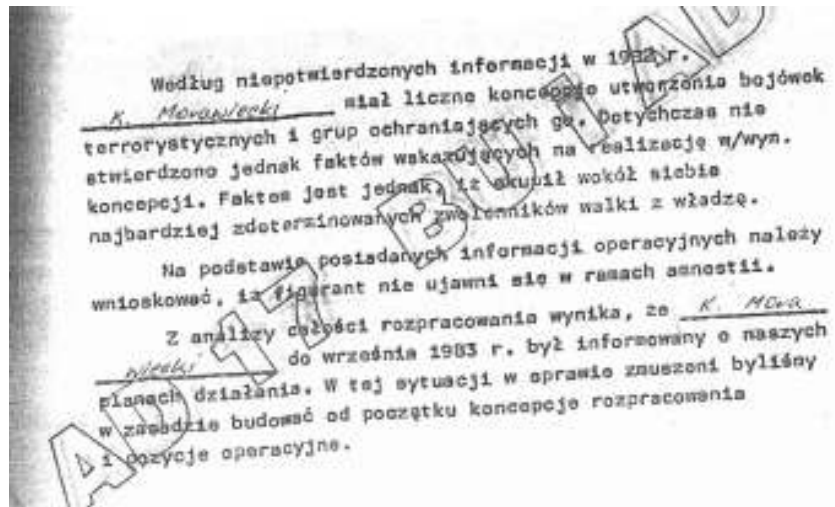 Według niepotwierdzonych informacji w 1982 r.
K. Morawiecki miał liczne koncepcje utworzenia bojówek
terrorystycznych i grup ochraniających go. Dotychczas nie
stwierdzono jednak faktów wskazujących na realizację w/wym.
koncepcji. Faktem jest jednak, iż skupił wokół siebie
najbardziej zdeterminowanych zwolenników walki z władzę.
Na podstawie posiadanych informacji operacyjnych należy
wnioskować, iż figurant nie ujawni się w ramach amnestii.
Z analizy całości rozpracowania wynika, że K. Mora
wiecki do września 1983 r. był informowany o naszych
planach działania. W tej sytuacji w sprawie zmuszeni byliśmy
w zasadzie budować od początku koncepcje rozpracowania
i pozycje operacyjne.
AD 17 BU 1 AD